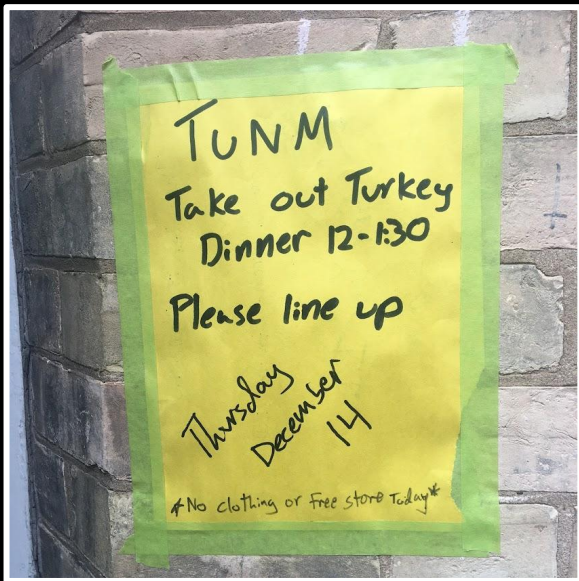 TUNM
Take out Turkey
Dinner 12-1:30
Please line up
Thursday
December
14
*No clothing or free store Today*